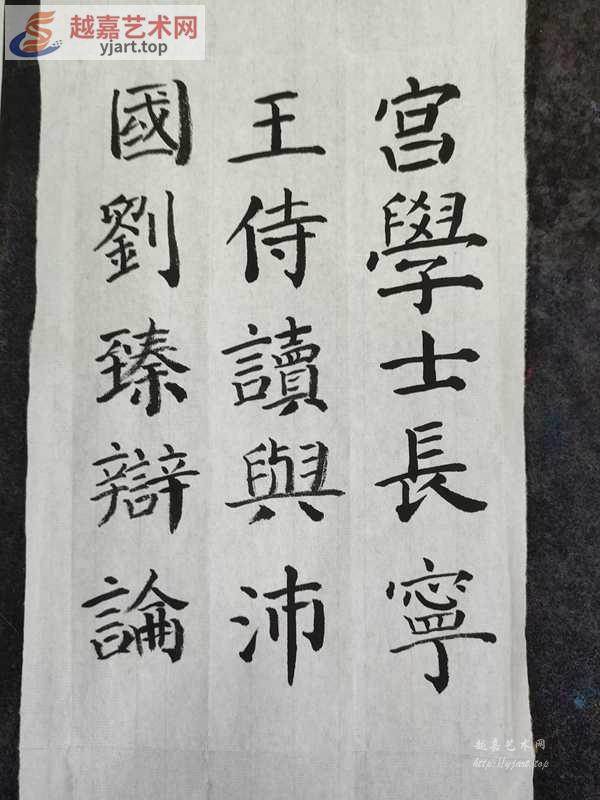 越嘉艺术网
yjart.top
宫學士長寧
王侍讀與沛
國劉臻辯論
越嘉艺术网
http://yjart.top